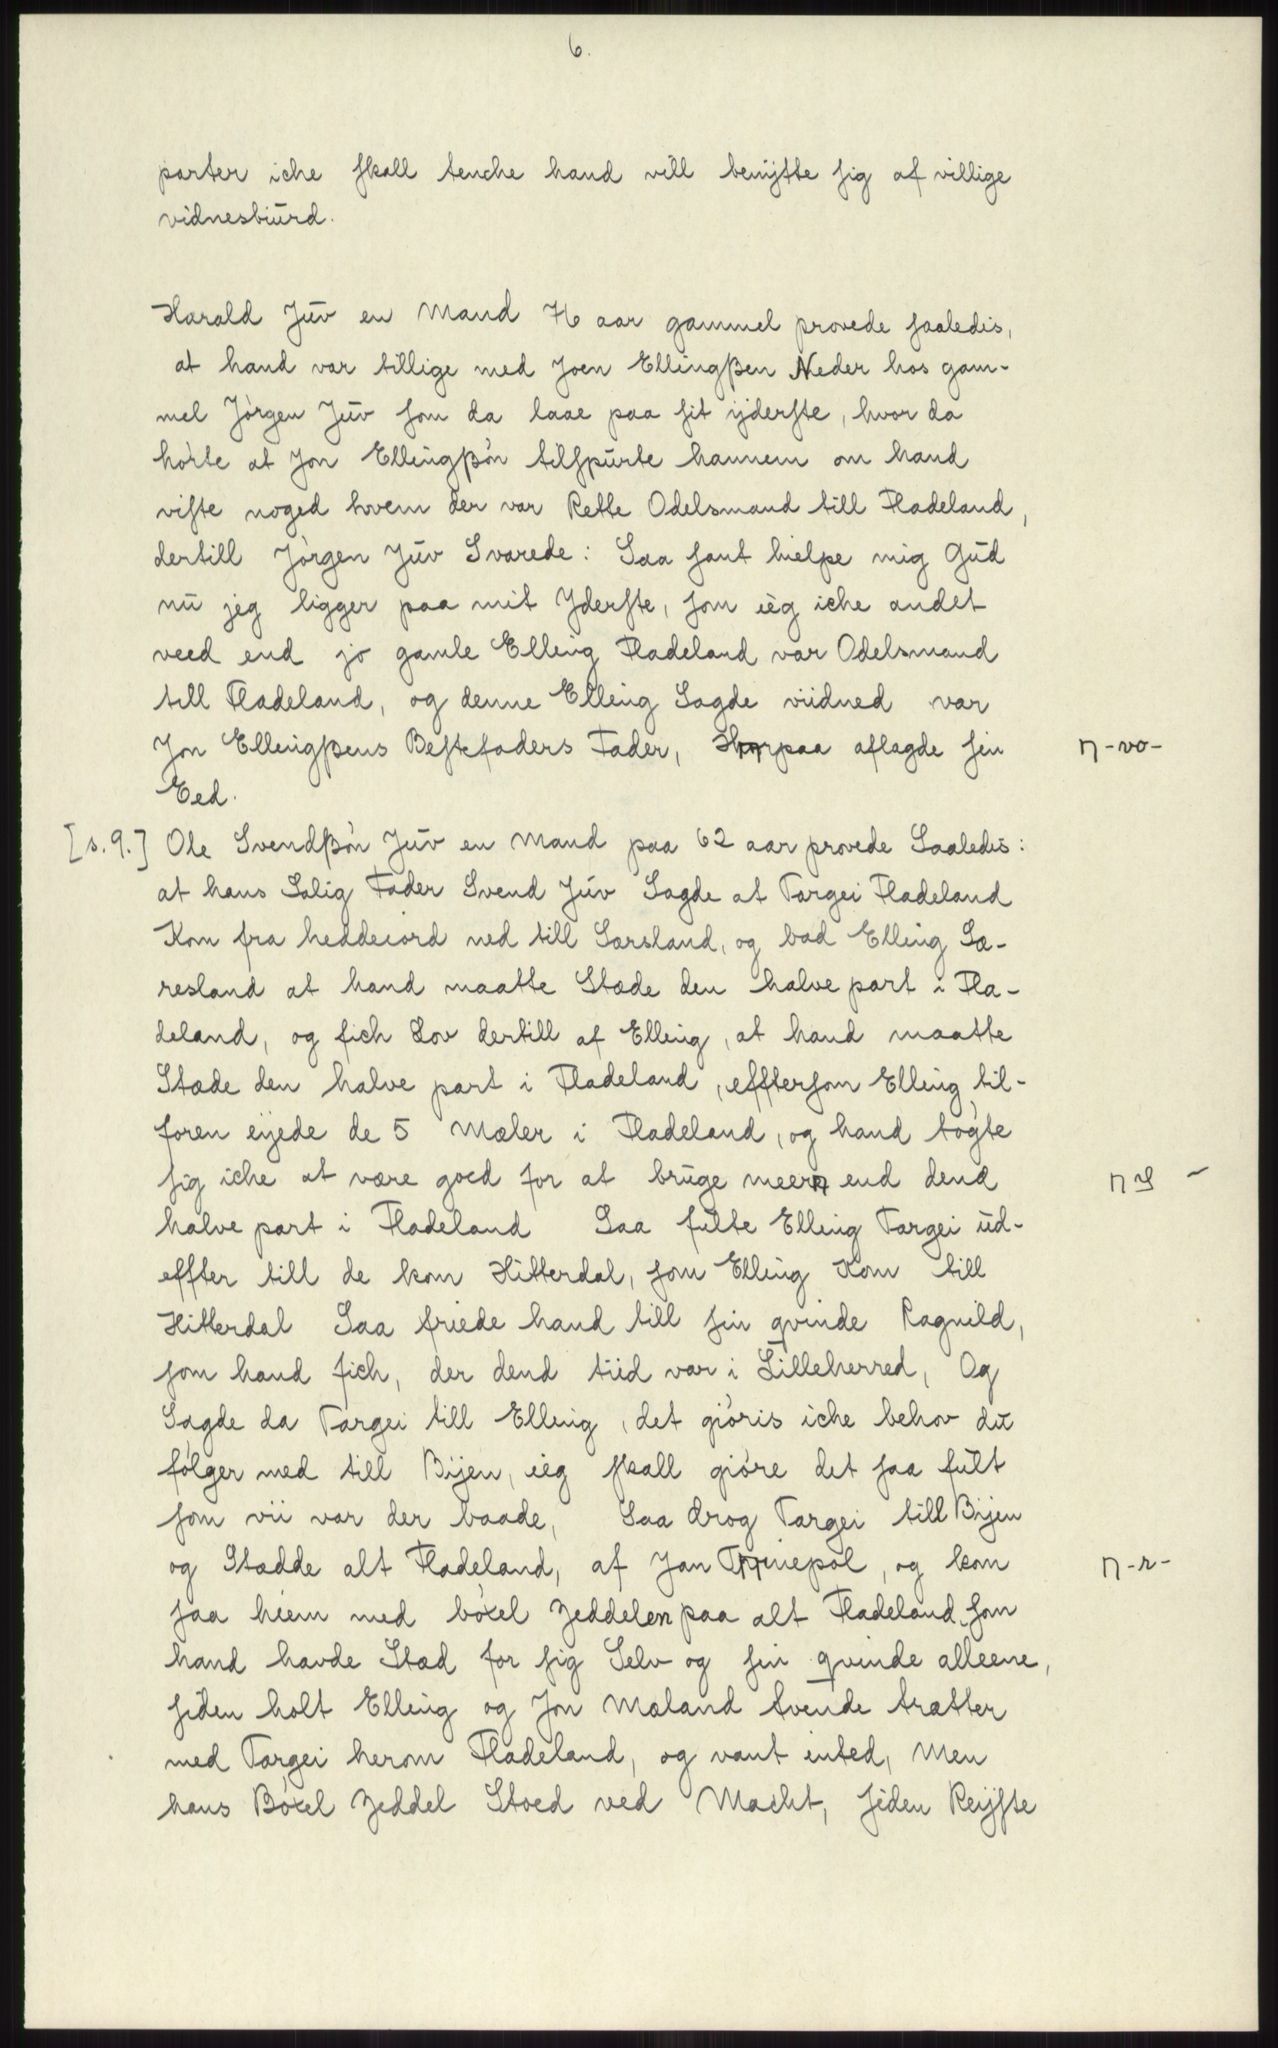 6.
parter iche skall tenche hand vill benÿtte sig af villige
vidnesbiurd.
Harald Juv en Mand 76 aar gammel provede saaledis,
at hand var tillige med Joen Ellingßen Neder hos gam-
mel Jörgen Juv som da laae paa sit ÿderste, hvor da
hörte at Jon Ellingßön tilspurte hannem om hand
viste noged hvem der var Rette Odelsmand till Fladeland,
dertill Jörgen Juv Svarede: Saa sant hielpe mig Gud
nu jeg ligger paa mit Yderste, som ieg iche andet
veed end jo gamle Elling Fladeland var Odelsmand
till Fladeland, og denne Elling Sagde viidned var
Jon Ellingßens Bestefaders Fader, paa aflagde sin
Eed.
⊓-vo-
[s.9.] Ole Svendßön Juv en Mand paa 62 aar provede Saaledis:
at hans Salig Fader Svend Juv Sagde at Targei Fladeland
Kom fra heddeiord ned till Særsland, og bad Elling Sæ-
resland at hand maatte Stæde den halve part i Fla-
deland, og fich Lov dertill af Elling, at hand maatte
Stæde den halve part i Fladeland, efftersom Elling til-
foren eÿede de 5 Mæler i Fladeland, og hand tögte
sig iche at være goed for at bruge meer end dend
⊓ S -
halve part i Fladeland Saa fulte Elling Targei ud-
effter till de kom Hitterdal, som Elling Kom till
Hitterdal Saa friede hand till sin qvinde Ragnild,
som hand fich, der dend tiid var i Lilleherred, Og
Sagde da Targei till Elling, det giöris iche behov du
fölger med till Bÿen, ieg skall giöre det saa fult
som vii var der baade, Saa drog Targei till Bÿen
og Stædde alt Fladeland, af Jan , og kom
⊓-r-
saa hiem med böxel Zeddelen paa alt Fladeland, som
hand havde Stæd for sig Selv og sin qvinde alleene,
siden holt Elling og Jon Mæland tvende trætter
med Targei herom Fladeland, og vant inted, Men
hans Böxel Zeddel Stoed ved Macht, siden Reÿste